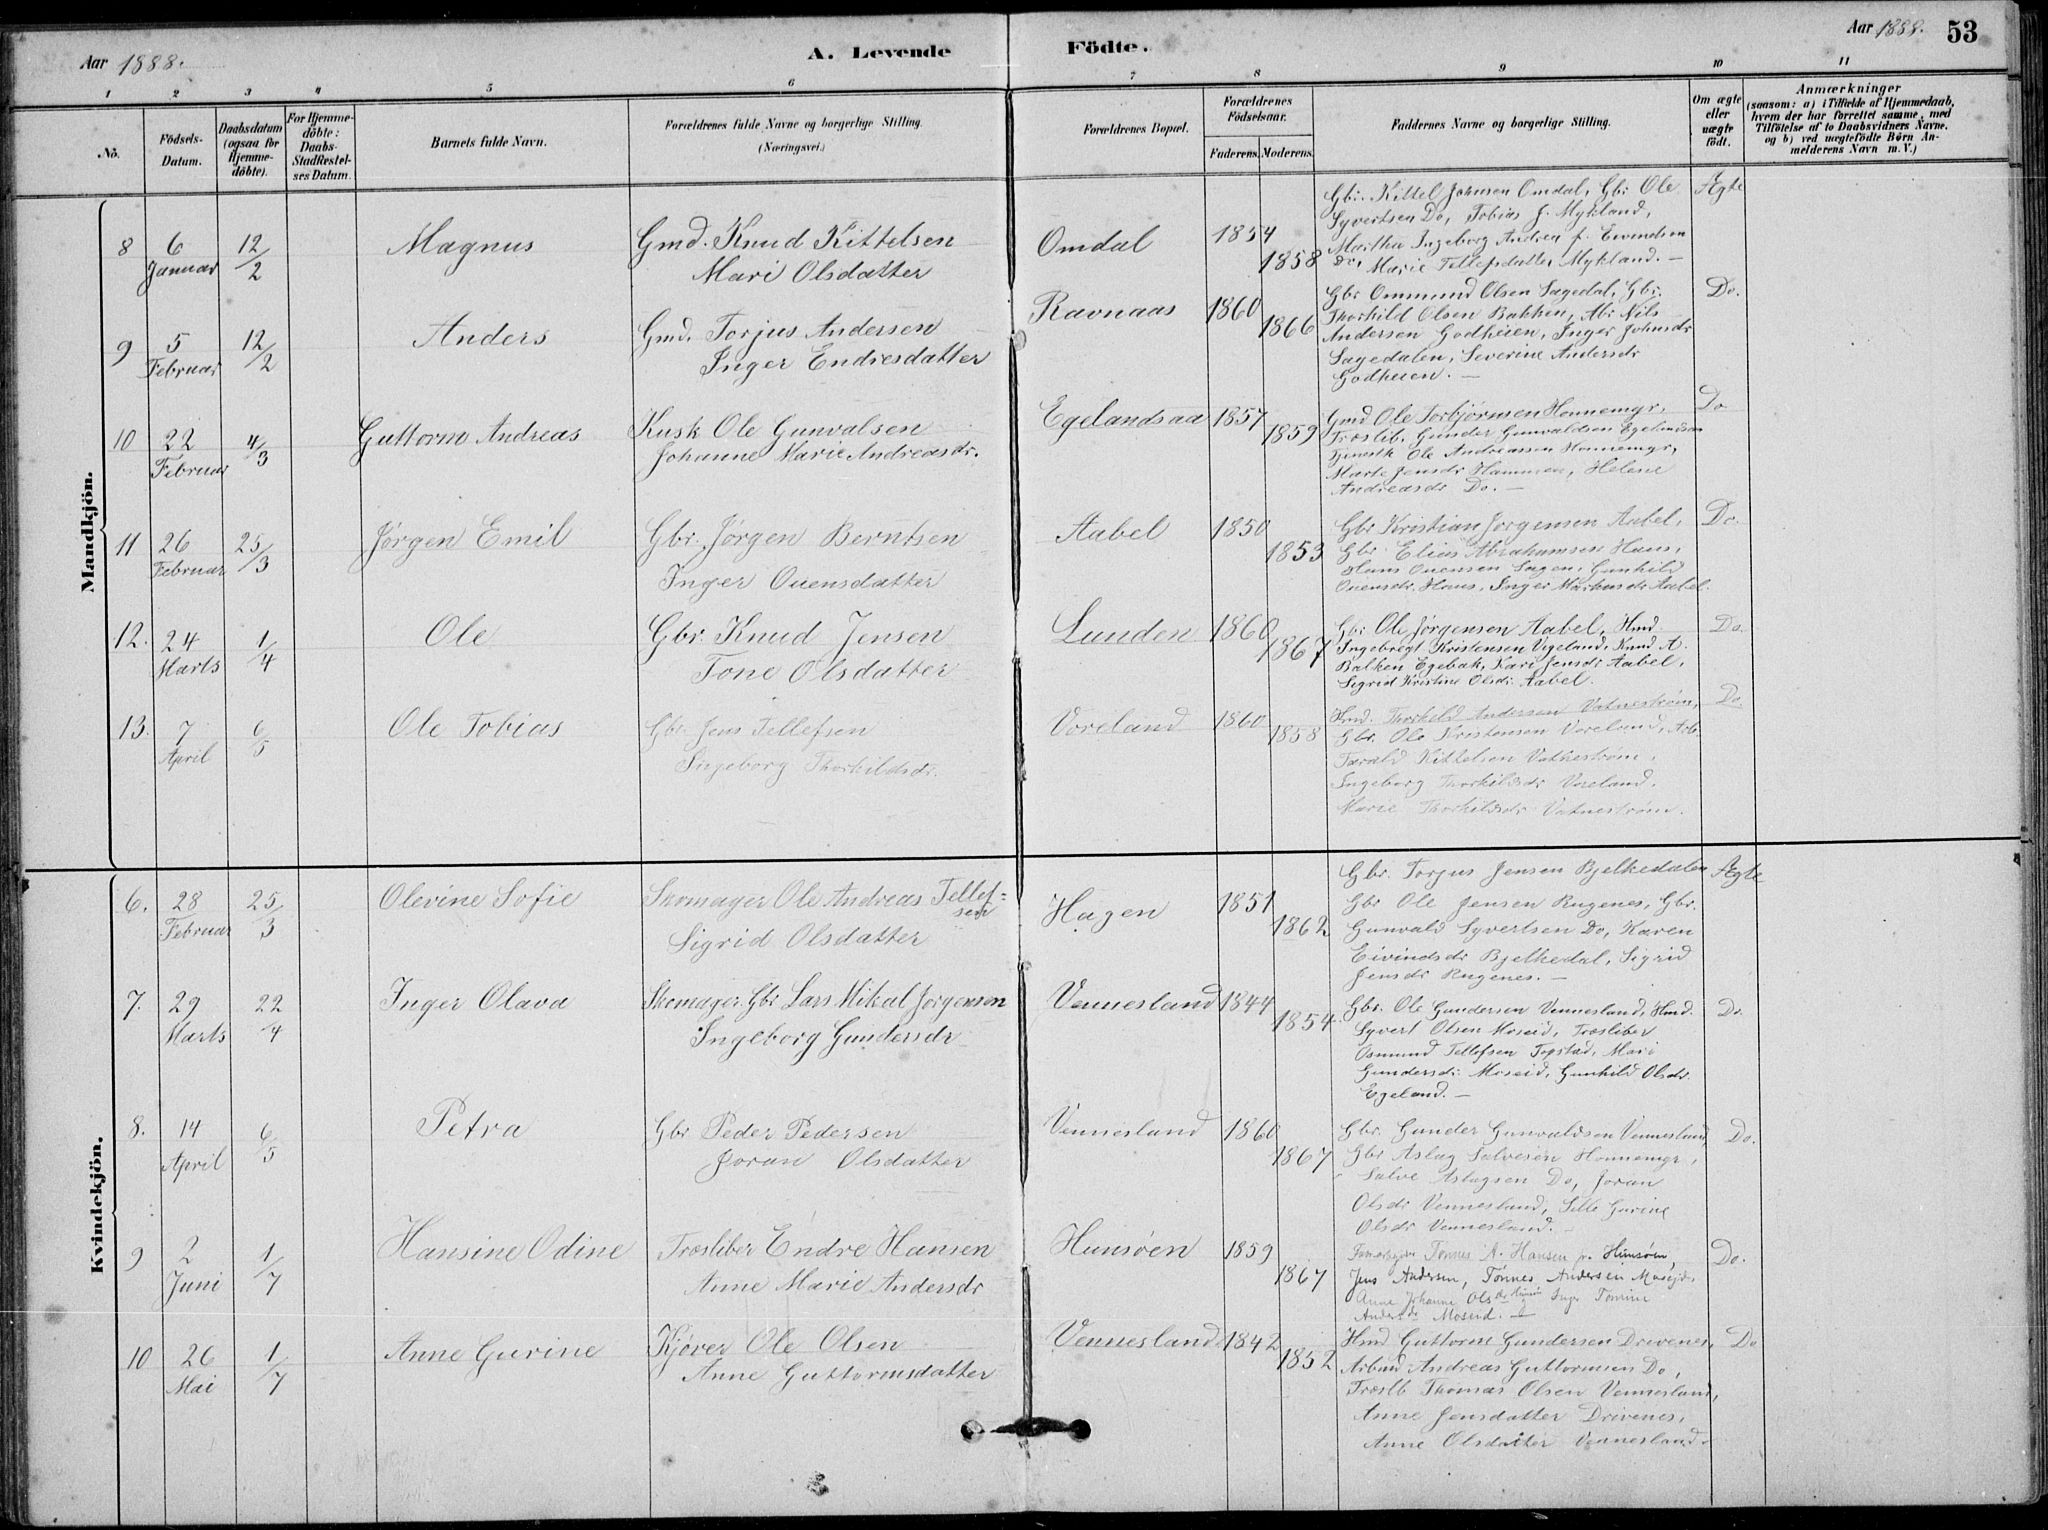 Aar 1888.
A. Levende
Födte.
Aar 1888.
53
1 2 3 4 5 6 7 8 9 10 11
No.
Födsels-
Datum.
Daabsdatum
(ogsaa for
Hjemme-
döbte).
For Hjemme-
döbte:
Daabs-
Stadfæstel-
ses Datum.
Barnets fulde Navn.
Forældrenes fulde Navne og borgerlige Stilling.
(Næringsvei.)
Forældrenes Bopæl.
Forældrenes
Födselsaar.
Faderens. Moderens.
Faddernes Navne og borgerlige Stilling.
Om ægte
eller
uægte
födt.
Anmærkninger
(saasom: a) i Tilfælde af Hjemmedaab,
hvem der har forrettet samme, med
Tilföielse af to Daabsvidners Navne,
og b) ved uægtefödte Börn An-
melderens Navn m. V.)
Mandkjön.
8 6 Januar 12/2 Magnus
Gmd. Knud Kittelsen
Mari Olsdatter
Omdal 1854 1858
Gbr. Kittel Johnsen Omdal, Gbr Ole
Syvertsen Do, Tobias J. Mykland,
Martha Ingeborg Andrea f. Eivindsen
Do, Marie Tellefsdatter Mykland. —
Ægte
9 5 Februar 12/2 Anders
Gmd. Torjus Andersen
Inger Endresdatter
Ravnaas 1860 1866
Gbr Ommund Olsen Sagedal, Gbr.
Thorkild Olsen Bakken, Abr Nils
Andersen Godheien, Inger Johnsdr
Sagedalen, Severine Andersdr
Godheien. —
Do.
10 22 Februar 4/3 Guttorm Andreas
Kusk Ole Gunvalsen
Johanne Marie Andreasdr.
Egelandsaa 1857 1859
Gmd Ole Torbjørnsen Honnemyr,
Træslib. Gunder Gunvaldsen Egelandsaa
Tjenestk Ole Andreassen Honnemyr,
Marte Jensdr Hammen, Helene
Andreasdr Do. —
Do
11 26 Februar 25/3 Jørgen Emil
Gbr. Jørgen Berntsen
Inger Ouensdatter
Aabel 1850 1853
Gbr Kristian Jørgensen Aabel,
Gbr. Elias Abrahamsen Haus,
Hans Ouensen Sagen, Gunhild
Ouensdr. Haus, Inger Markusdr Aabel.
Do.
12. 24 Marts 1/4 Ole
Gbr. Knud Jensen
Tone Olsdatter
Lunden 1860 1867
Gbr Ole Jørgensen Aabel, Hmd.
Ingebregt Kristensen Vigeland, Knud A.
Balken Egebak, Kari Jensdr Aabel,
Sigrid Kristine Olsdr Aabel.
Do.
13. 7 April 6/5 Ole Tobias
Gbr. Jens Tellefsen
Ingeborg Thorkildsdr.
Voreland 1860 1858
Hmd. Thorkeld Andersen Vatnestrøm,
Gbr. Ole Kristensen Voreland, Arb.
Tarald Kittelsen Vatnestrøm,
Ingeborg Thorkildsdr Voreland.
Marie Thorkildsdr Vatnestrøm.
Do.
Kvindekjön.
6. 28 Februar 25/3 Olevine Sofie
Skomager Ole Andreas Tellef-
sen
Sigrid Olsdatter
Hagen 1851 1862
Gbr. Torjus Jensen Bjelkedalen
Gbr Ole Jensen Rugenes, Gbr.
Gunvald Syvertsen Do, Karen
Eivindsdr Bjelkedal, Sigrid
Jensdr Rugenes. —
Ægte
7. 29 Marts 22/4 Inger Olava
Skomager Gbr Lars Mikal Jørgensen
Ingeborg Gundersdr
Vennesland 1844 1854
Gbr. Ole Gundersen Vennesland, Hmd.
Syvert Olsen Moseid, Træsliber
Osmund Tellefsen Topstad, Mari
Gundersdr Moseid, Gunhild Olsdr
Egeland. —
Do.
8. 14 April 6/5 Petra
Gbr Peder Pedersen
Joran Olsdatter
Vennesland 1860 1867
Gbr. Gunder Gunvaldsen Vennesland
Gbr Aslag Salvesen Honnemyr,
Salve Aslagsen Do, Joran
Olsdr Vennesland, Sille Gurine
Olsdr Vennesland. —
Do.
9 2 Juni 1/7 Hansine Odine
Træsliber Endre Hansen
Anne Marie Andersdr
Hunsøen 1859 1867
Tønnes A. Hansen p. Hunsøen,
Jens Andersen, Tønnes Andersen Moseid.
Anne Johanne Olsdr Hunsøen Inger Tomine
Andersdr Moseid. —
Do.
10 26 Mai 1/7 Anne Gurine
Kjører Ole Olsen
Anne Guttormsdatter
Vennesland 1842 1852
Hmd Guttorm Gundersen Drivenes,
Arbmd Andreas Guttormsen Do,
Træslb Thomas Olsen Vennesland,
Anne Jensdatter Drivenes,
Anne Olsdatter Vennesland.
Do